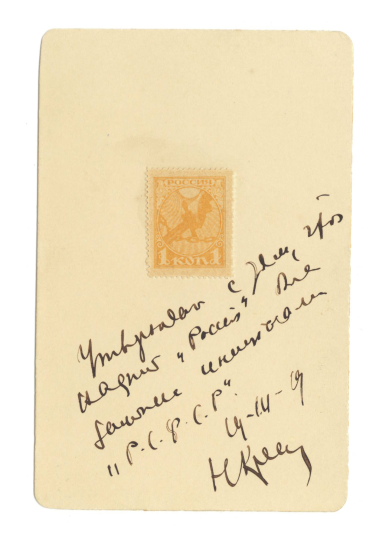 РОССІЯ
1 КОП 1
Утверждаю с тем, чтоб
надпись "Россия" была
заменена инициалами
"Р.С.Ф.С.Р".
19-III-19